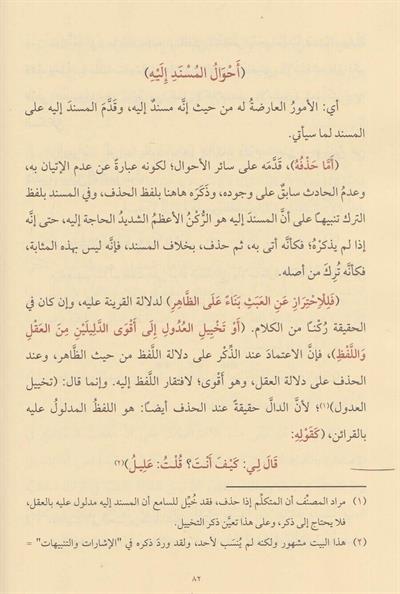 (أَحْوَالُ المُسْنَدِ إِلَيْهِ)
أي: الأمورُ العارضةُ له من حيث إنَّه مسندٌ إليه، وقدَّمَ المسندَ إليه على
المسند لما سيأتي.
(أَمَّا حَذْفُهُ)، قدَّمَه على سائر الأحوال؛ لكونه عبارةً عن عدم الإتيان به،
وعدمُ الحادث سابقٌ على وجوده، وذَكَرَه هاهنا بلفظ الحذف، وفي المسند بلفظ
الترك تنبيهـًا على أنَّ المسندَ إليه هو الرُّكْنُ الأعظمُ الشديدُ الحاجة إليه، حتى إنَّه
إذا لم يذكرْهُ؛ فكأنَّه أتى به، ثم حذف، بخلاف المسند، فإنَّه ليس بهذه المثابة،
فكأنَّه تُرِكَ من أصله.
(فَلِلِاحْتِرَازِ عَنِ العَبَثِ بَنَاءً عَلَى الظَّاهِرِ) لدلالة القرينة عليه، وإن كان في
الحقيقة رُكْنـًا من الكلام. (أَوْ تَخْيِيلِ العُدُولِ إِلَى أَقْوَى الدَّلِيلَيْنِ مِنَ العَقْلِ
وَاللَّفْظِ)، فإنَّ الاعتمادَ عند الذِّكْر على دلالة اللَّفظ من حيث الظَّاهر، وعند
الحذف على دلالة العقل، وهو أقْوى؛ لافتقار اللَّفظ إليه. وإنما قال: (تخييل
العدول)(١)؛ لأنَّ الدالَّ حقيقةً عند الحذف أيضـًا: هو اللفظُ المدلولُ عليه
بالقرائن، (كَقَوْلِهِ:
قَالَ لِي: كَيْفَ أَنْتَ؟ قُلْتُ: عَلِيلُ)(٢)
(١) مراد المصنِّف أن المتكلِّم إذا حذف، فقد خُيِّل للسامع أن المسند إليه مدلول عليه بالعقل،
فلا يحتاج إلى ذكر، وعلى هذا تعيَّن ذكر التخييل.
(٢) هذا البيت مشهور ولكنه لم يُنسَب لأحد، ولقد وردَ ذكره في "الإشارات والتنبيهات" =
٨٢